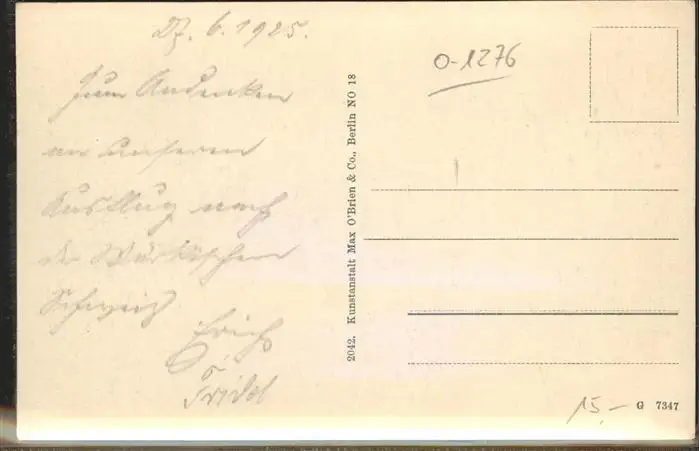 27. 6. 1925.
Zum Andenken
an unseren
Ausflug nach
der Märkischen
Schweiz
Erich
Fridel
2042. Kunstanstalt Max O'Brien & Co., Berlin NO 18
O-1276
15,-
G 7347